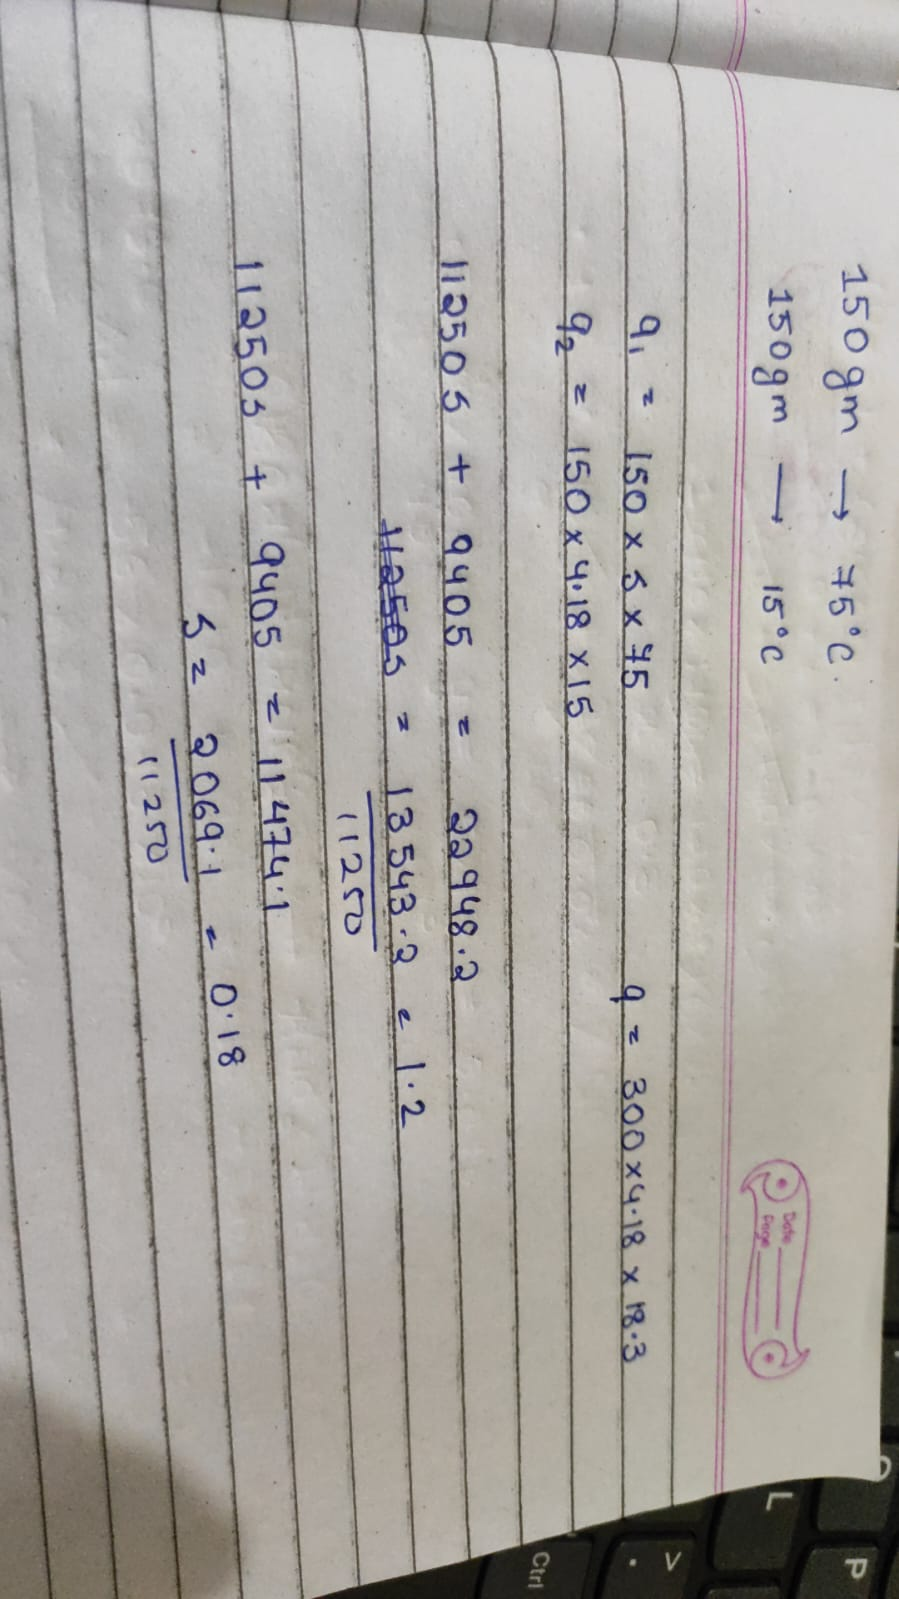 150gm → 75°C.
150gm → 15°C
Date
Page
q₁ = 150 × s × 75 q = 300×4.18 × 18.3
q₂ = 150 × 4.18 × 15
11250s + 9405 = 22948.2
11250s = 13543.2 / 11250 = 1.2
11250s + 9405 = 11474.1
s = 2069.1 / 11250 = 0.18
L
P
>
.
Ctrl